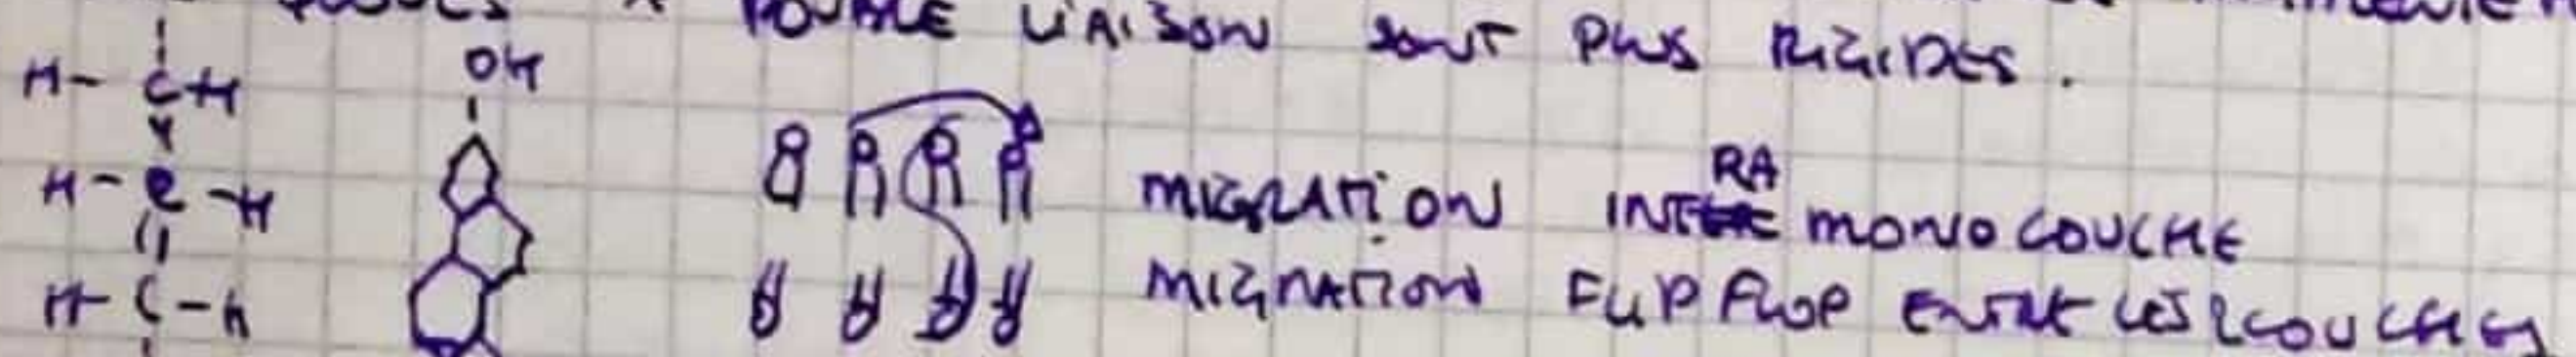 DOUBLE LIAISON SONT PLUS RIGIDES.
H- CH
OH
H-C-H
H-C-H
MIGRATION INTRA MONO COUCHE
MIGRATION FLIP FLOP ENTRE LES 2 COUCHES